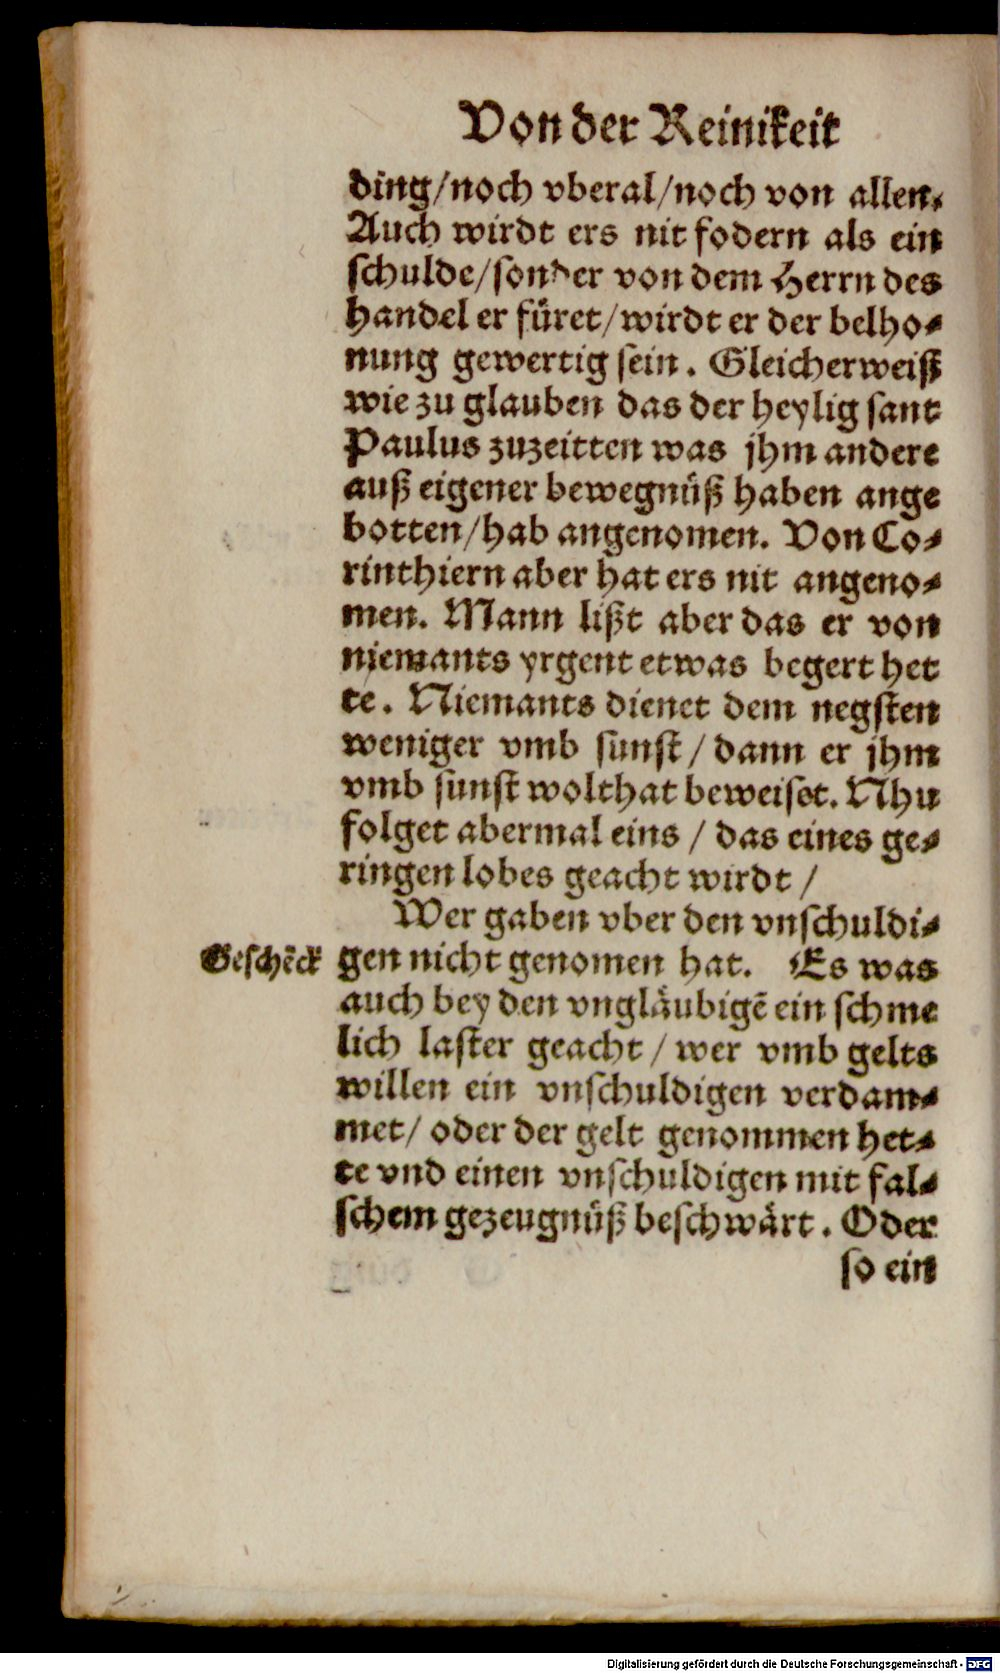 Von der Reinikeit
ding/noch vberal/noch von allen.
Auch wirdt ers nit fodern als ein
schulde/sonder von dem Herrn des
handel er füret/wirdt er der belho-
nung gewertig sein. Gleicherweiß
wie zu glauben das der heylig sant
Paulus zuzeitten was jhm andere
auß eigener bewegnüß haben ange
botten/hab angenomen. Von Co-
rinthiern aber hat ers nit angeno-
men. Mann lißt aber das er von
niemants yrgent etwas begert het
te. Niemants dienet dem negsten
weniger vmb sunst / dann er jhm
vmb sunst wolthat beweiset. Nhu
folget abermal eins / das eines ge-
ringen lobes geacht wirdt /
Wer gaben vber den vnschuldi-
Geschẽck gen nicht genomen hat. Es was
auch bey den vngläubigẽ ein schme
lich laster geacht / wer vmb gelts
willen ein vnschuldigen verdam-
met/ oder der gelt genommen het-
te vnd einen vnschuldigen mit fal-
schem gezeugnüß beschwärt. Oder
so ein
Digitalisierung gefördert durch die Deutsche Forschungsgemeinschaft - DFG